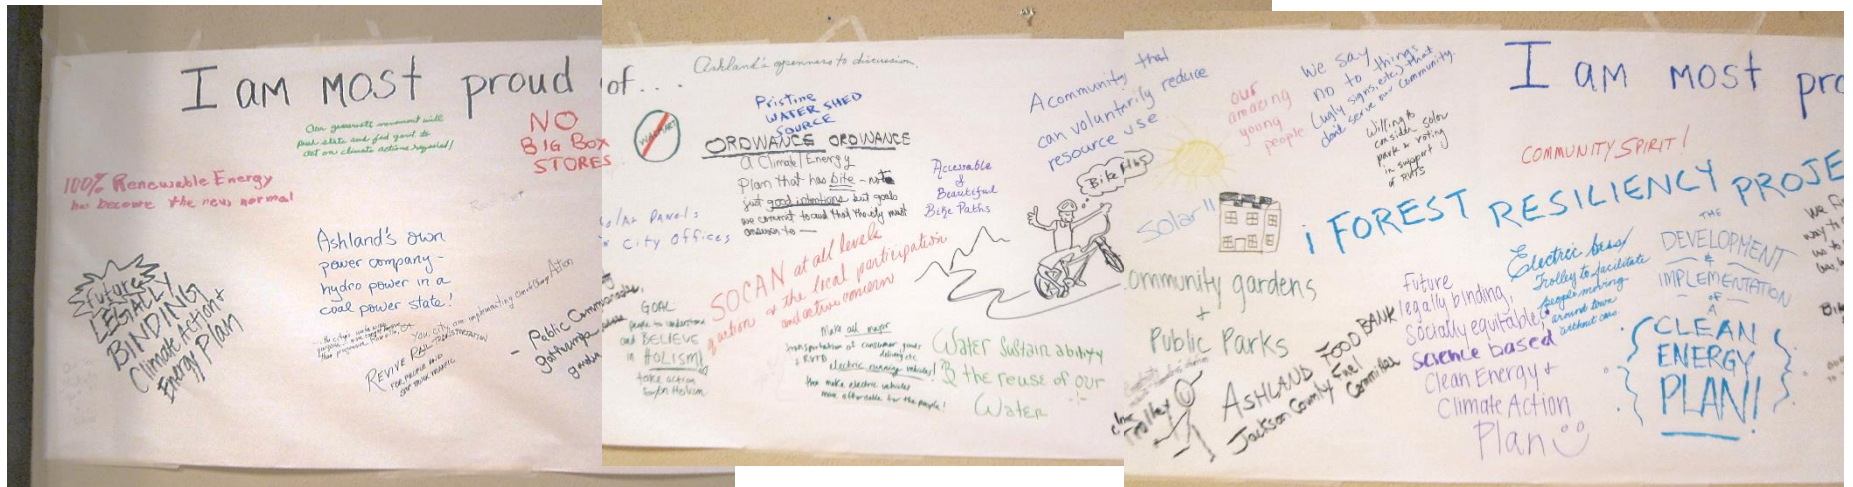 I am most proud of...
Our grassroots movement will
push state and fed govt to
act on climate actions
NO
BIG BOX
STORES
100% Renewable Energy
has become the new normal
Ashland's own
power company-
hydro power in a
coal power state!
Future
LEGALLY
BINDING
Climate Action &
Energy Plan
REVIVE RAIL
FOR PEOPLE AND
- Public
Ashland's openness to discussion.
WALMART
Pristine
WATER SHED
SOURCE
ORDWANCE ORDWANCE
a Climate/Energy
Plan that has bite - not
just good intentions but goals
we commit to and that they must
answer to -
Solar Panels
City Offices
Accessable
&
Beautiful
Bike Paths
A community that
can voluntarily reduce
resource use
Bike Paths
SOCAN at all levels
of action & the local participation
and active concern
GOAL
people to understand
and BELIEVE
in HOLISM!
take action
Make all major
transportation of consumer goods
& RVTD
electric running vehicles!
this make electric vehicles
more affordable for the people!
Water Sustainability
& the reuse of our
Water
our
amazing
young
people
We say
no to things
(ugly signs, etc.) that
don't serve our community.
Willing to
consider solar
park & voting
in support of
RVTD
solar!!
Community gardens
+
Public Parks
Trolley
ASHLAND FOOD BANK
Jackson County Fuel
Committee
I am most pro
COMMUNITY SPIRIT!
¡ FOREST RESILIENCY PROJE
Future
legally binding,
Socially equitable,
science based
Clean Energy +
Climate Action
Plan
Electric bus/
Trolley to facilitate
people moving
around town
without cars
THE
DEVELOPMENT
&
IMPLEMENTATION
OF
A
CLEAN
ENERGY
PLAN!